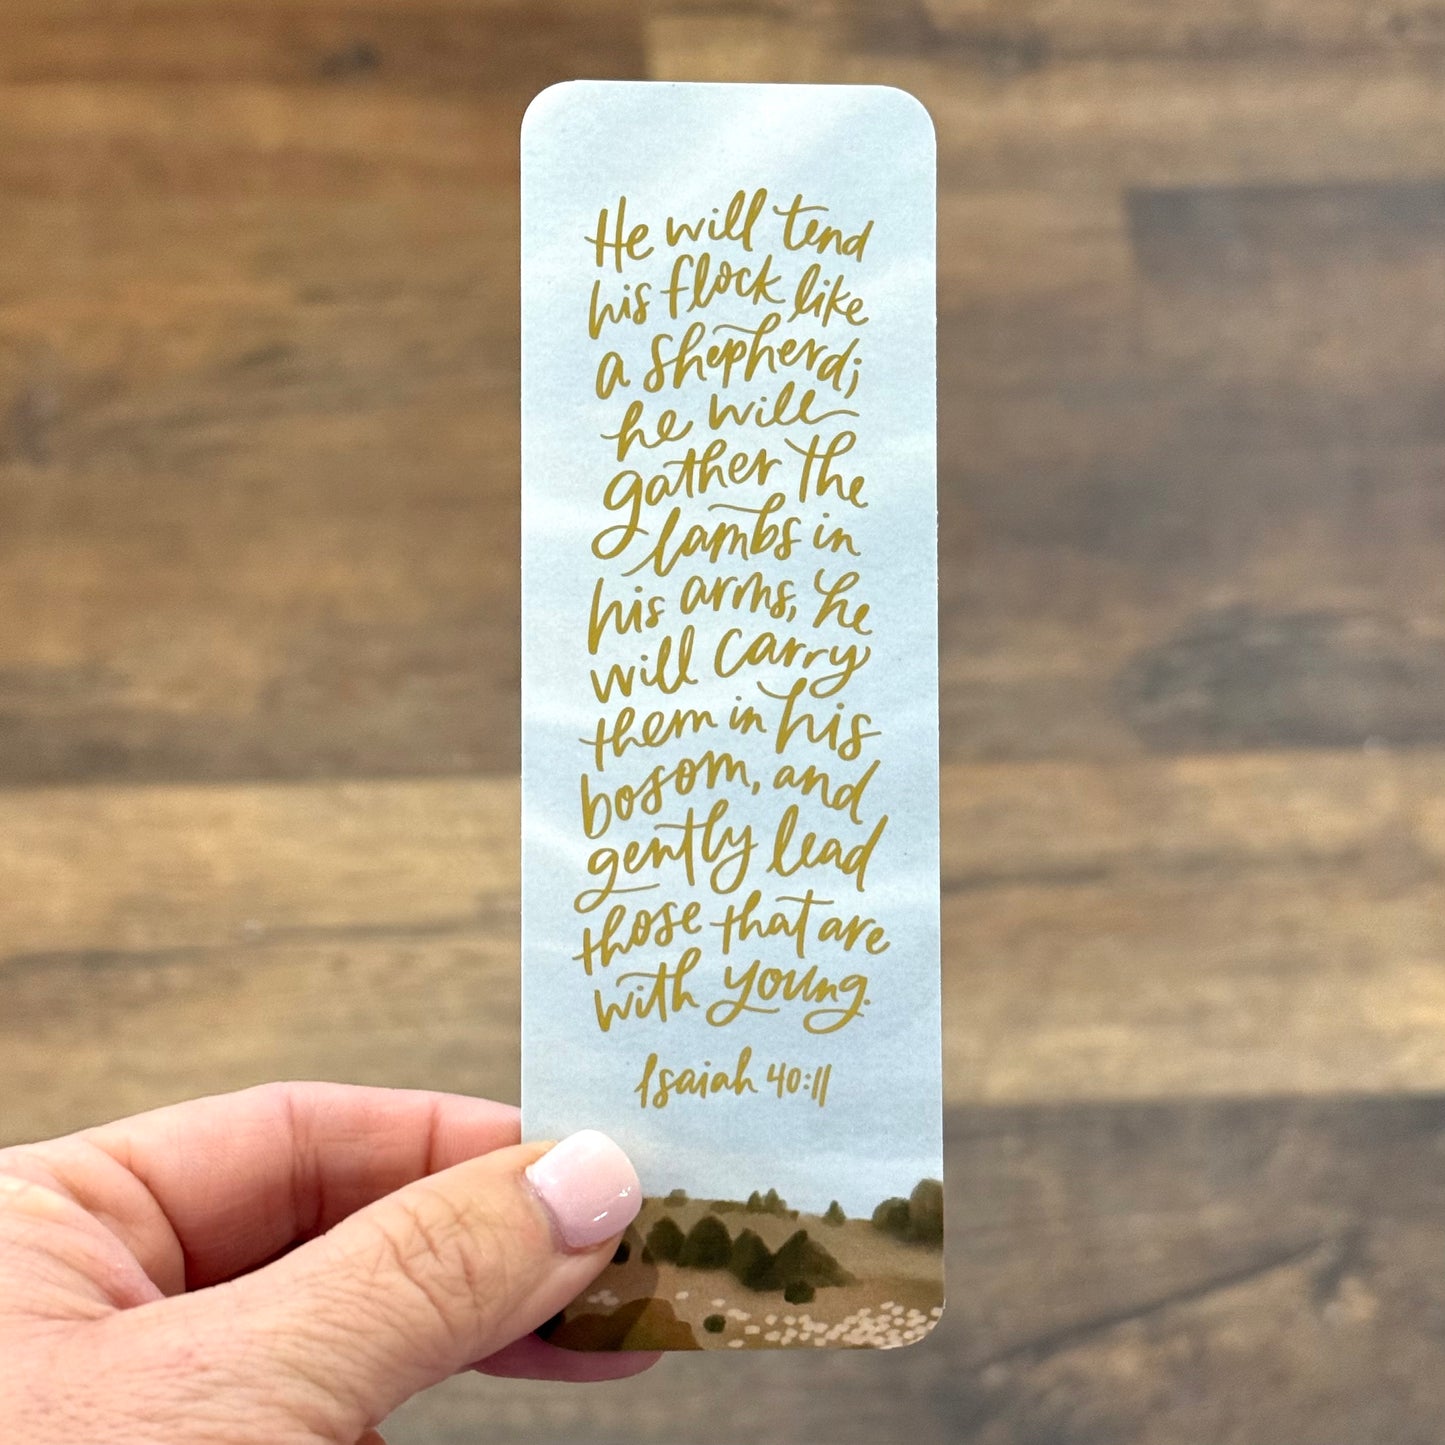 He will tend
his flock like
a shepherd;
he will
gather the
lambs in
his arms, he
will carry
them in his
bosom, and
gently lead
those that are
with young.
Isaiah 40:11